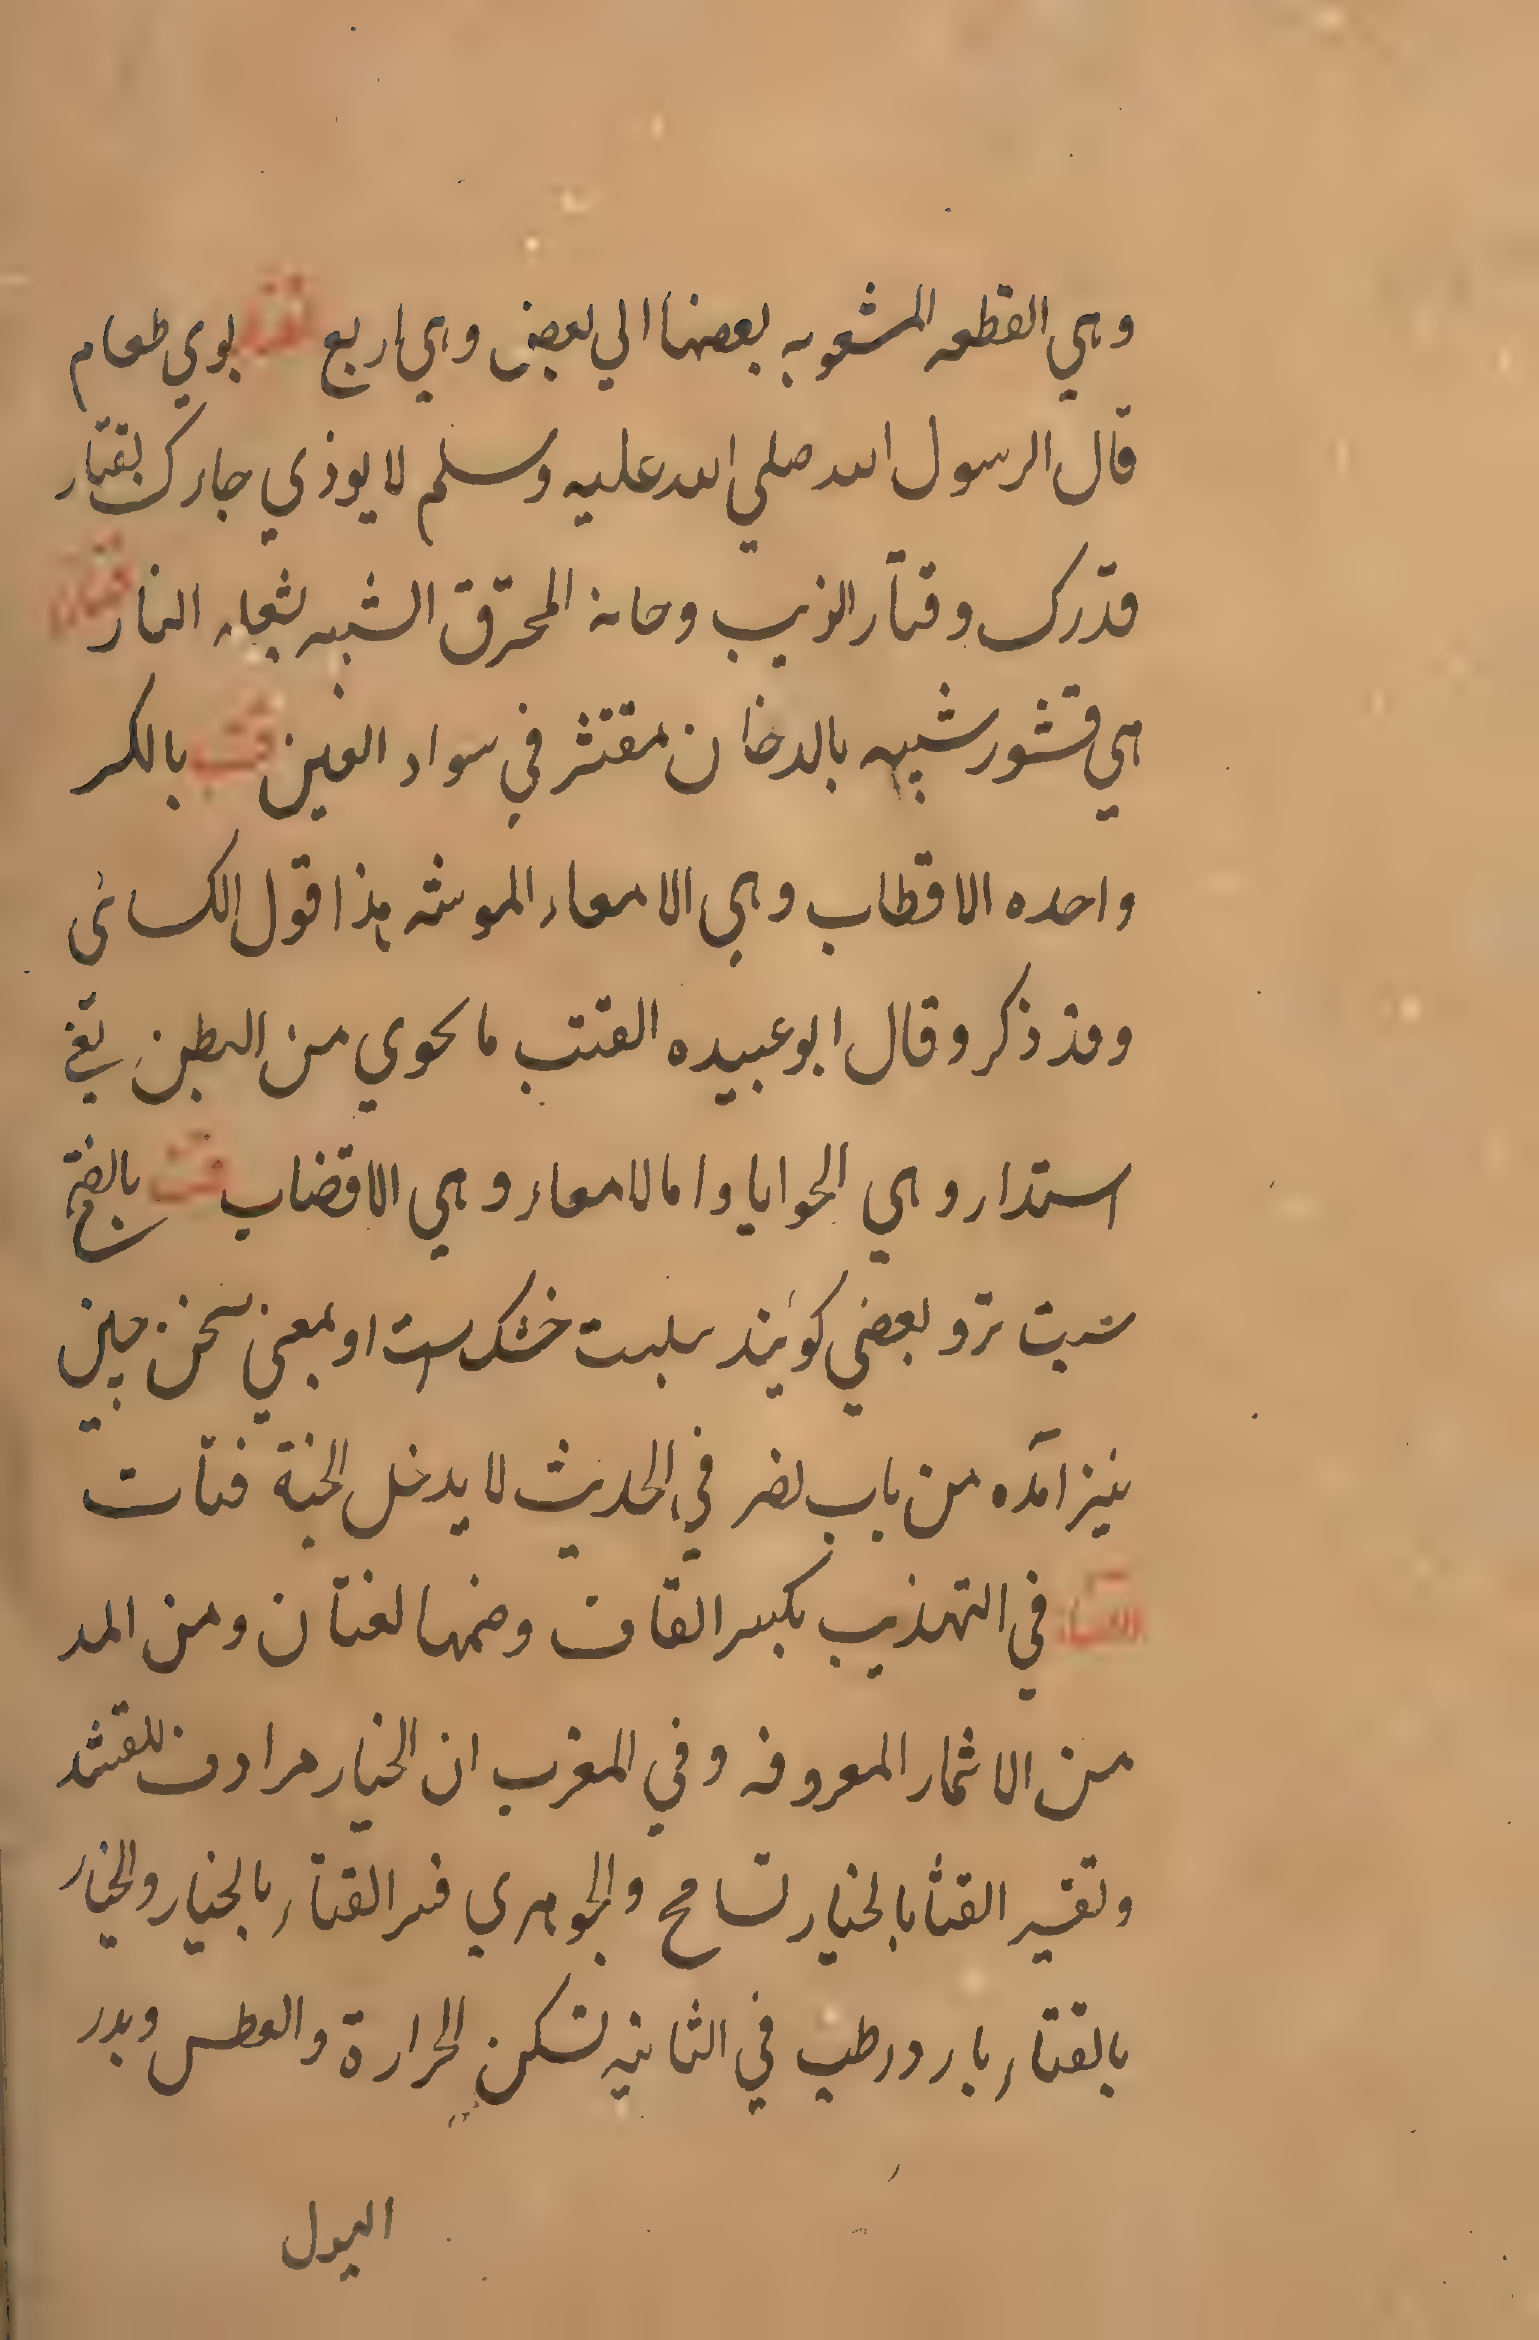 وهي القطعه المشعوبه بعضها الي بعض وهي اربع قتر بوي طعام
قال الرسول الله صلي الله عليه وسلم لا يوذي جارك بقتار
قدرك وقتار الزيب وحانه المحترق الشبيه بشعله النار قتار
هي قشور شبيهه بالدخان مقتثر في سواد العين قتب بالكسر
واحده الاقطاب وهي الامعاء الموشه هذا قول الكسائي
وقد ذكر وقال ابو عبيده القتب ما تحوي من البطن يغي
استدار وهي الحوايا واما الامعاء وهي الاقضاب قت بالفتح
سبت تر و بعضي كويند سلبت خشكست او بمعني سخن چين
نيز آمده من باب نصر في الحديث لا يدخل الجنة قتات
القثاء في التهذيب بكسر القاف وضمها لغتان ومن المد
من الاثمار المعروفه وفي المغرب ان الخيار مرادف للقثد
وتفسير القثا بالخيار تسامح والجوهري فسر القثاء بالخيار والخيار
بالقثاء بارد رطب في الثانيه تسكن الحرارة والعطس ويدر
البول